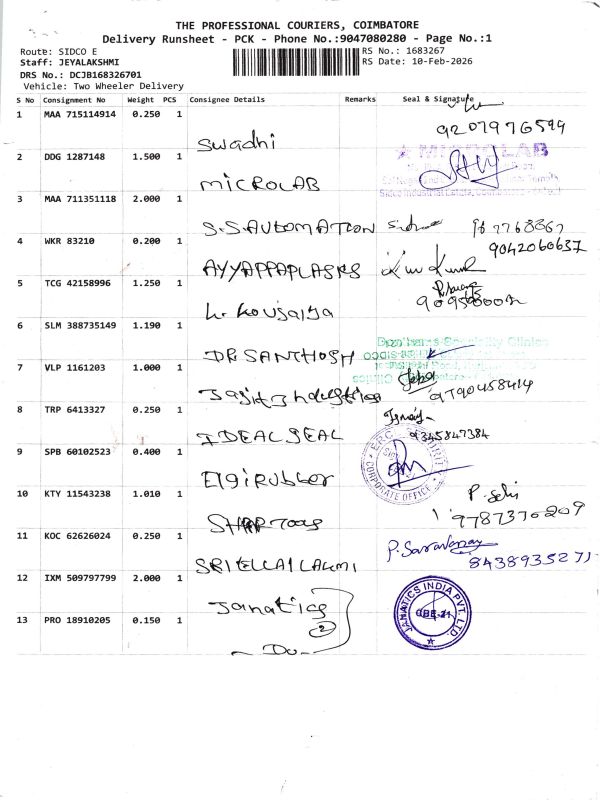 THE PROFESSIONAL COURIERS, COIMBATORE
Delivery Runsheet - PCK - Phone No.:9047080280 - Page No.:1
Route: SIDCO E
Staff: JEYALAKSHMI
DRS No.: DCJB168326701
Vehicle: Two Wheeler Delivery
RS No.: 1683267
RS Date: 10-Feb-2026
S No Consignment No Weight PCS Consignee Details Remarks Seal & Signature
1 MAA 715114914 0.250 1 Swadhi 9207976599
2 DDG 1287148 1.500 1 MICROLAB MICROLAB
3 MAA 711351118 2.000 1 S.S AUTOMATION
4 WKR 83210 0.200 1 9042060637
5 TCG 42158996 1.250 1
6 SLM 388735149 1.190 1 DR SANTHOSH
7 VLP 1161203 1.000 1 9790458414
8 TRP 6413327 0.250 1 IDEAL SEAL 9345847384
9 SPB 60102523 0.400 1 Elgi Rubber CORPORATE OFFICE
10 KTY 11543238 1.010 1 9787370209
11 KOC 62626024 0.250 1 P. Saravanan 8438935271
12 IXM 509797799 2.000 1 Janatics JANATICS INDIA PVT. LTD.
CBE-21
2
13 PRO 18910205 0.150 1 - Do -